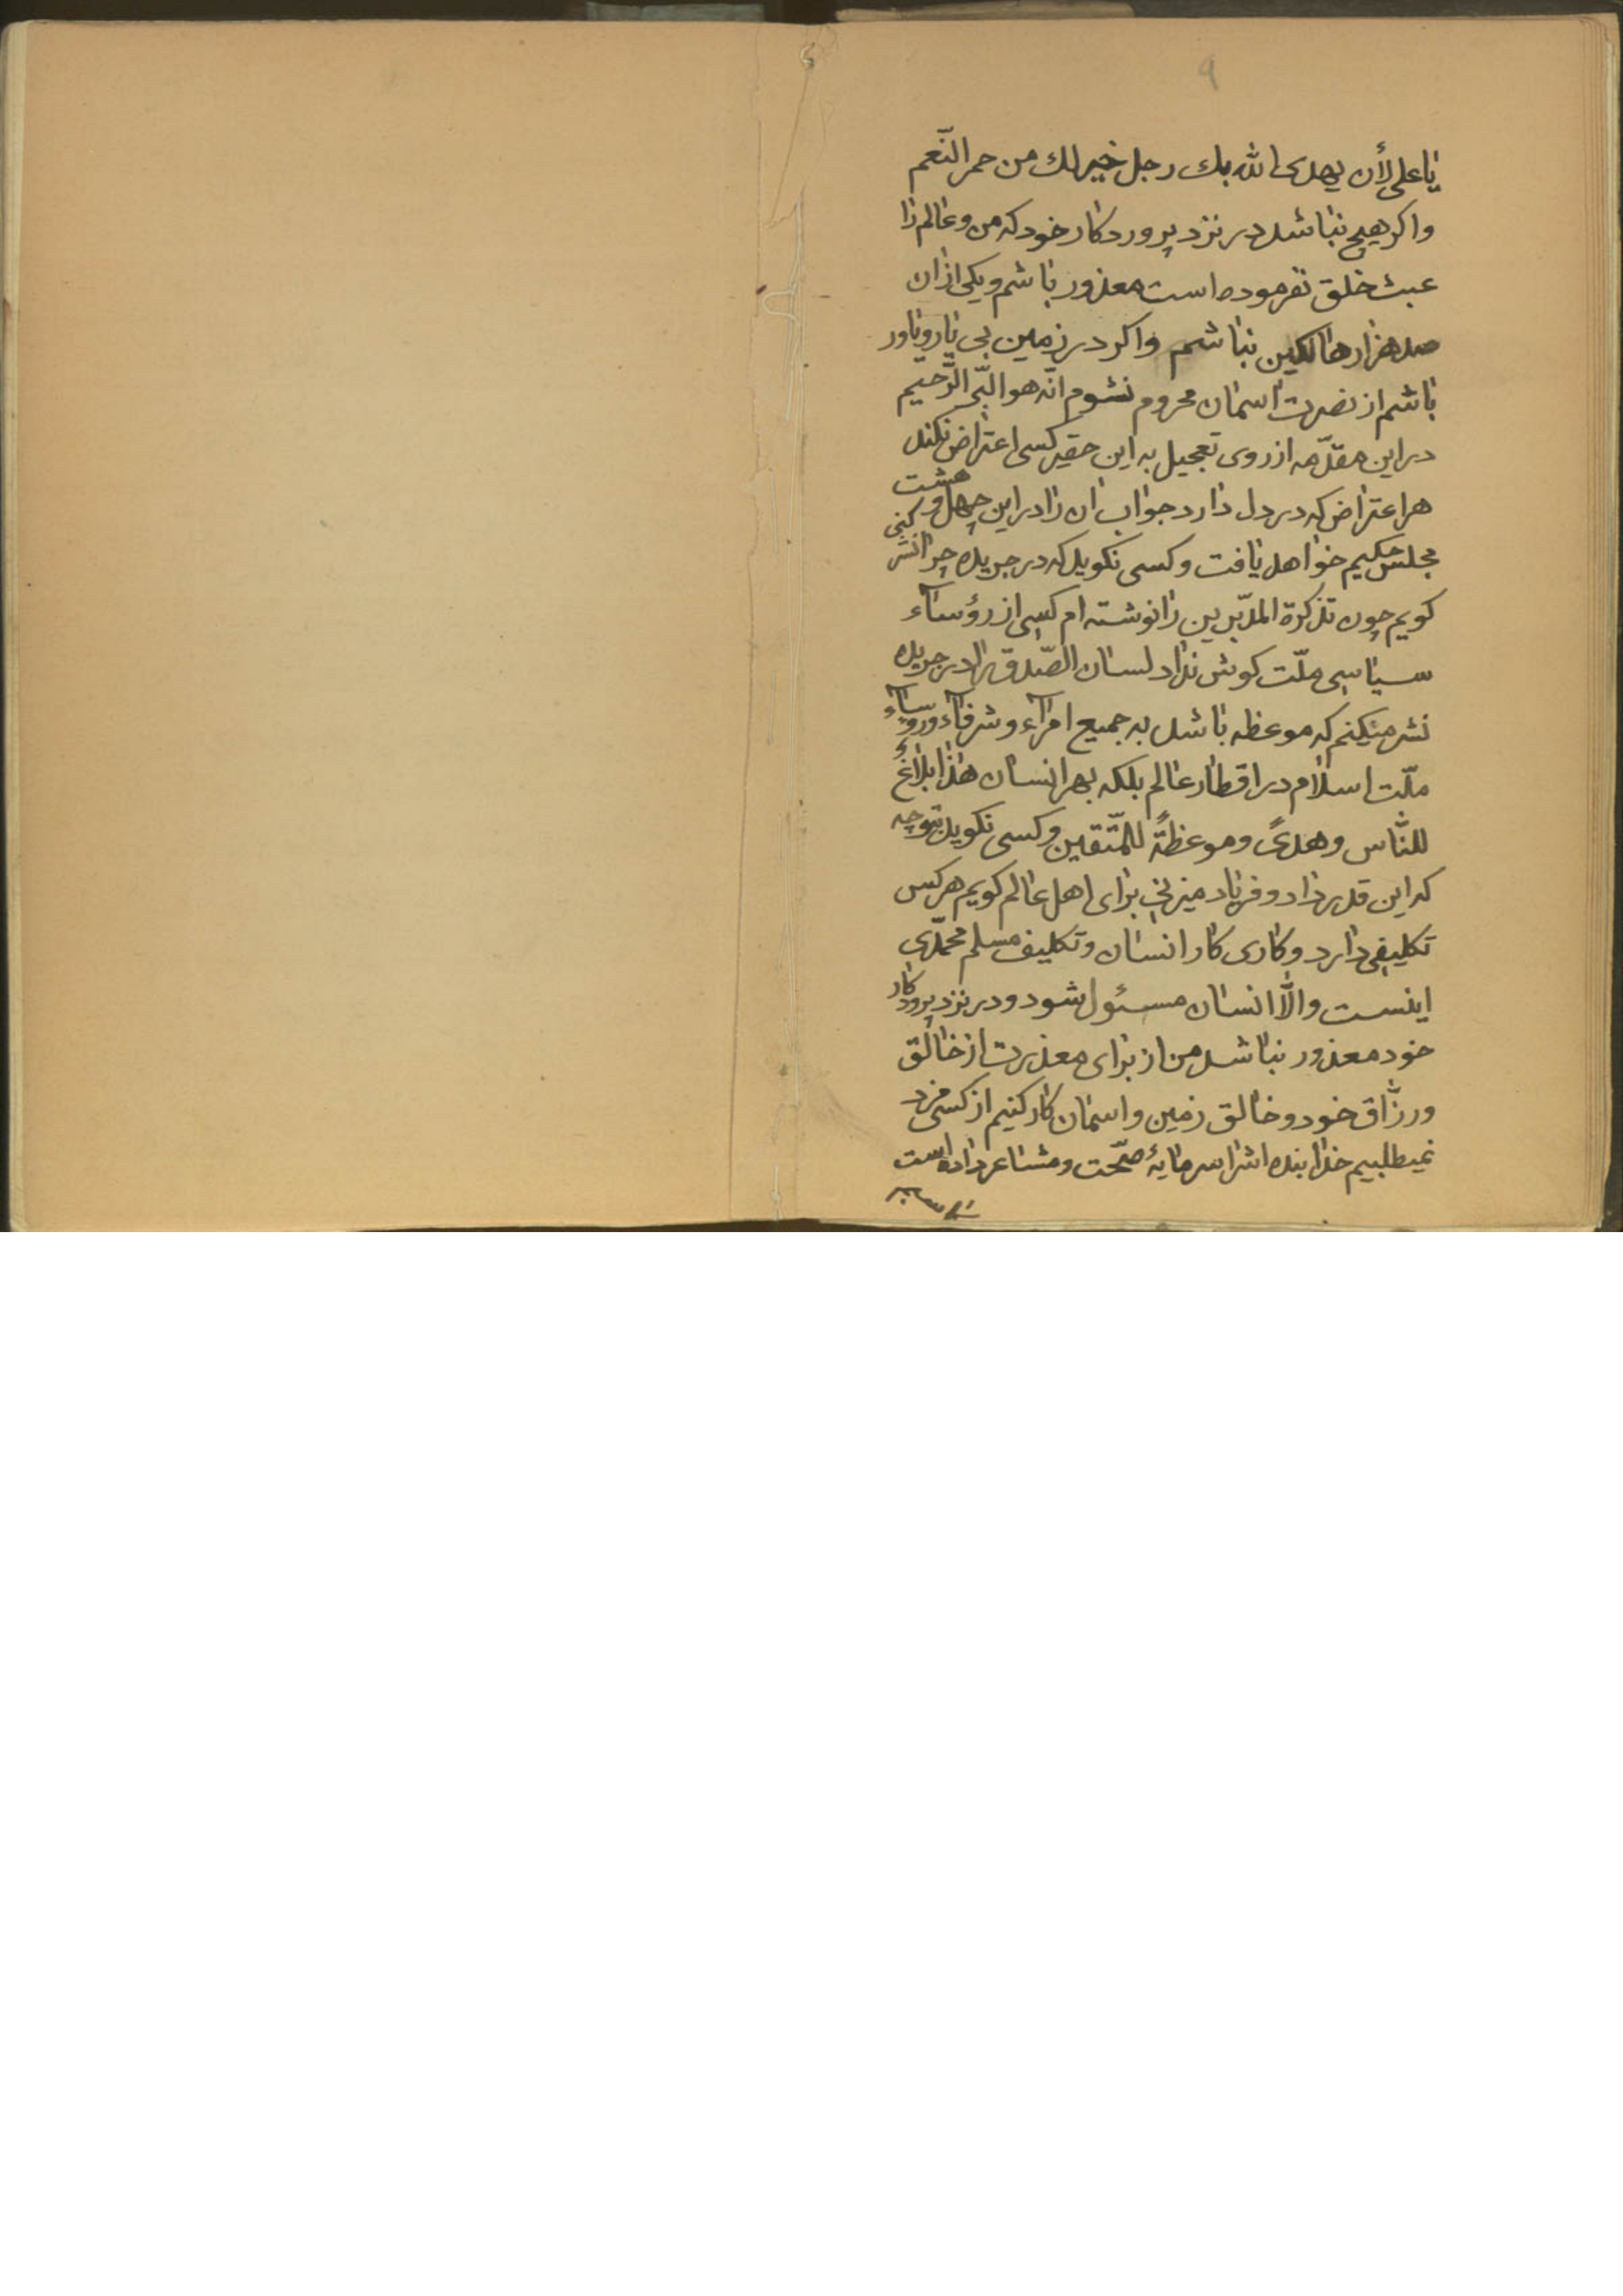 ۹
یا علی لأن یهدی الله بك رجل خیر لك من حمر النّعم
واکر هیچ نباشد در نزد پروردکار خود که من وعالم را
عبث خلق نفرموده است معذور باشم ویکی ازان
صد هزار هالکین نباشم واکر در زمین بی یار ویاور
باشم از نصرت اسمان محروم نشوم انّه هو البّر الرّحیم
در این مقدّمه از روی تعجیل به این حقیر کسی اعتراض نکند
هر اعتراض که در دل دارد جواب ان را در این چهل و هشت
مجلس حکیم خواهد یافت وکسی نکوید که در جریده چرا نشر کنی
کویم چون تذکرة المدّبرین را نوشته ام کسی از رؤساء
سیاسی ملّت کوش نداد لسان الصّدق را در جریده
نشر میکنم که موعظه باشد به جمیع امرآء وشرفآء ورؤسآء
ملّت اسلام در اقطار عالم بلکه بهر انسان هٰذا بلاٰغٌ
للنّاس وهدیً وموعظةً للمتّقین وکسی نکوید بتو چه
که این قدر داد وفریاد میزنی برای اهل عالم کویم هر کس
تکلیفی دارد وکاری کار انسان وتکلیف مسلم محمّدی
اینست والّا انسان مسئول شود ودر نزد پروردکار
خود معذور نباشد من از برای معذرت از خالق
ورزّاق خود وخالق زمین واسمان کار کنیم از کسی مزد
نمیطلبیم خدا بنده اشرا سرمایهٔ صحّت ومشاعر داده است